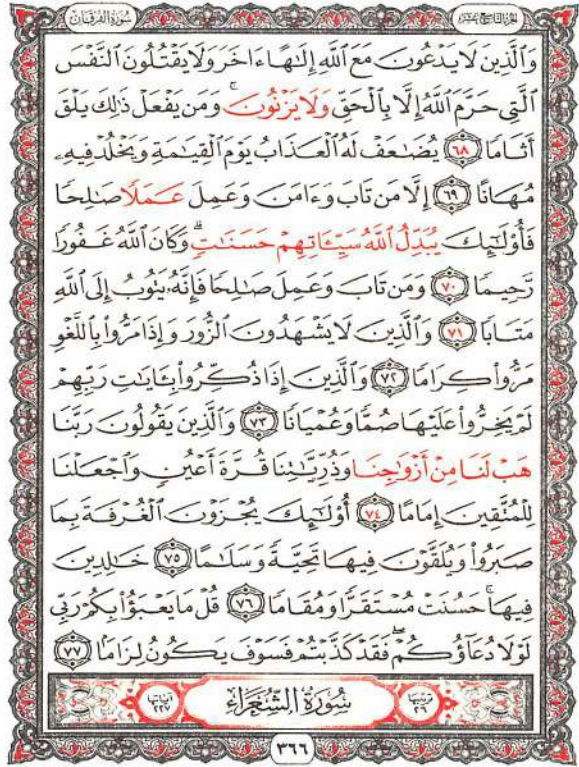 الجزء التاسع عشر سورة الفرقان
وَٱلَّذِينَ لَا يَدْعُونَ مَعَ ٱللَّهِ إِلَٰهًا ءَاخَرَ وَلَا يَقْتُلُونَ ٱلنَّفْسَ
ٱلَّتِى حَرَّمَ ٱللَّهُ إِلَّا بِٱلْحَقِّ وَلَا يَزْنُونَ ۚ وَمَن يَفْعَلْ ذَٰلِكَ يَلْقَ
أَثَامًا ٦٨ يُضَٰعَفْ لَهُ ٱلْعَذَابُ يَوْمَ ٱلْقِيَٰمَةِ وَيَخْلُدْ فِيهِۦ
مُهَانًا ٦٩ إِلَّا مَن تَابَ وَءَامَنَ وَعَمِلَ عَمَلًا صَٰلِحًا
فَأُو۟لَٰٓئِكَ يُبَدِّلُ ٱللَّهُ سَيِّـَٔاتِهِمْ حَسَنَٰتٍ ۗ وَكَانَ ٱللَّهُ غَفُورًا
رَّحِيمًا ٧٠ وَمَن تَابَ وَعَمِلَ صَٰلِحًا فَإِنَّهُۥ يَتُوبُ إِلَى ٱللَّهِ
مَتَابًا ٧١ وَٱلَّذِينَ لَا يَشْهَدُونَ ٱلزُّورَ وَإِذَا مَرُّوا۟ بِٱللَّغْوِ
مَرُّوا۟ كِرَامًا ٧٢ وَٱلَّذِينَ إِذَا ذُكِّرُوا۟ بِـَٔايَٰتِ رَبِّهِمْ
لَمْ يَخِرُّوا۟ عَلَيْهَا صُمًّا وَعُمْيَانًا ٧٣ وَٱلَّذِينَ يَقُولُونَ رَبَّنَا
هَبْ لَنَا مِنْ أَزْوَٰجِنَا وَذُرِّيَّٰتِنَا قُرَّةَ أَعْيُنٍ وَٱجْعَلْنَا
لِلْمُتَّقِينَ إِمَامًا ٧٤ أُو۟لَٰٓئِكَ يُجْزَوْنَ ٱلْغُرْفَةَ بِمَا
صَبَرُوا۟ وَيُلَقَّوْنَ فِيهَا تَحِيَّةً وَسَلَٰمًا ٧٥ خَٰلِدِينَ
فِيهَا ۚ حَسُنَتْ مُسْتَقَرًّا وَمُقَامًا ٧٦ قُلْ مَا يَعْبَؤُا۟ بِكُمْ رَبِّى
لَوْلَا دُعَآؤُكُمْ ۖ فَقَدْ كَذَّبْتُمْ فَسَوْفَ يَكُونُ لِزَامًۢا ٧٧
ترتيبها ٢٦ سُورَةُ الشُّعَرَاءِ آياتها ٢٢٧
٣٦٦